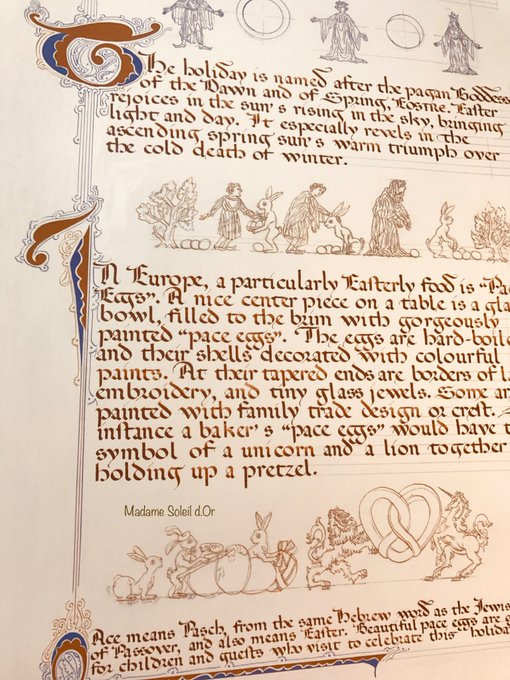 The holiday is named after the pagan Goddess
of the Dawn and of Spring, Eostne. Easter
rejoices in the sun's rising in the sky, bringing
light and day. It especially revels in the
ascending spring sun's warm triumph over
the cold death of winter.
In Europe, a particularly Easterly food is
Eggs". A nice center piece on a table is a
bowl, filled to the brim with gorgeously
painted "pace eggs". The eggs are
and their shells decorated with colourful
paints. At their tapered ends are borders of
embroidery, and tiny glass jewels. Some
painted with family trade design or crest.
instance a baker's "pace eggs" would have
symbol of a unicorn and a lion together
holding up a pretzel.
Madame Soleil d.Or
Pace means Pasch, from the same Hebrew word as the
of Passover, and also means Easter. Beautiful pace eggs are
for children and guests who visit to celebrate this